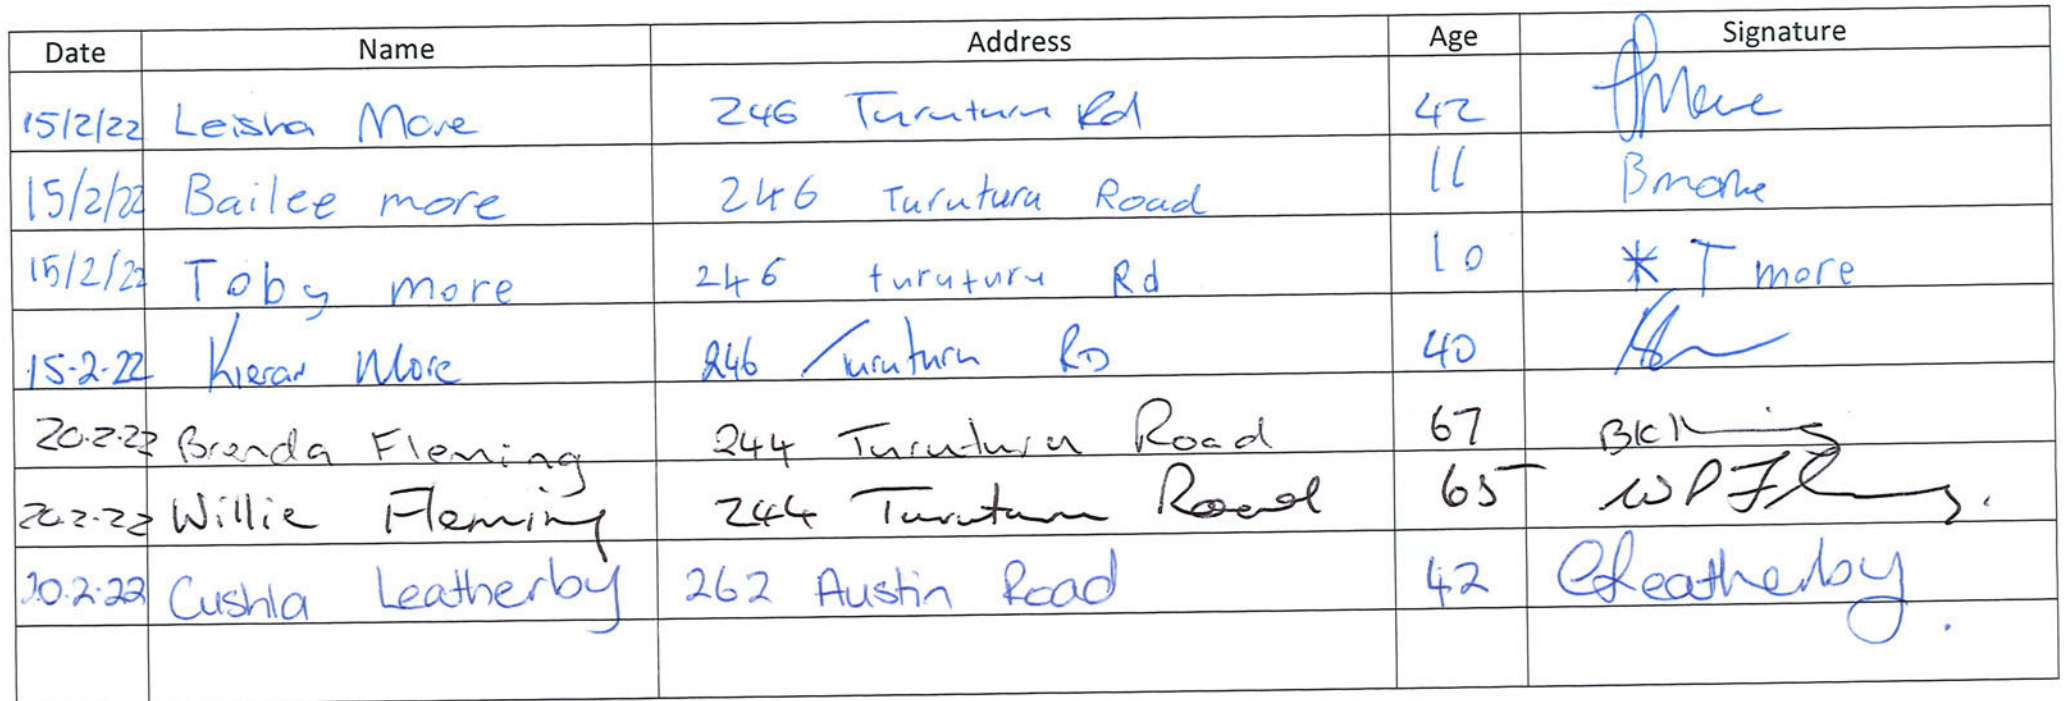 Date Name Address Age Signature
15/2/22 Leisha More 246 Turuturu Rd 42
15/2/22 Bailee more 246 Turuturu Road 11 B more
15/2/22 Toby more 246 turuturu Rd 10 * T more
15-2-22 Kieran More 246 Turuturu RD 40
20.2.22 Brenda Fleming 244 Turuturu Road 67
20.2.22 Willie Fleming 244 Turuturu Road 65 WP Fleming.
20.2.22 Cushla Leatherby 262 Austin Road 42 CLeatherby.